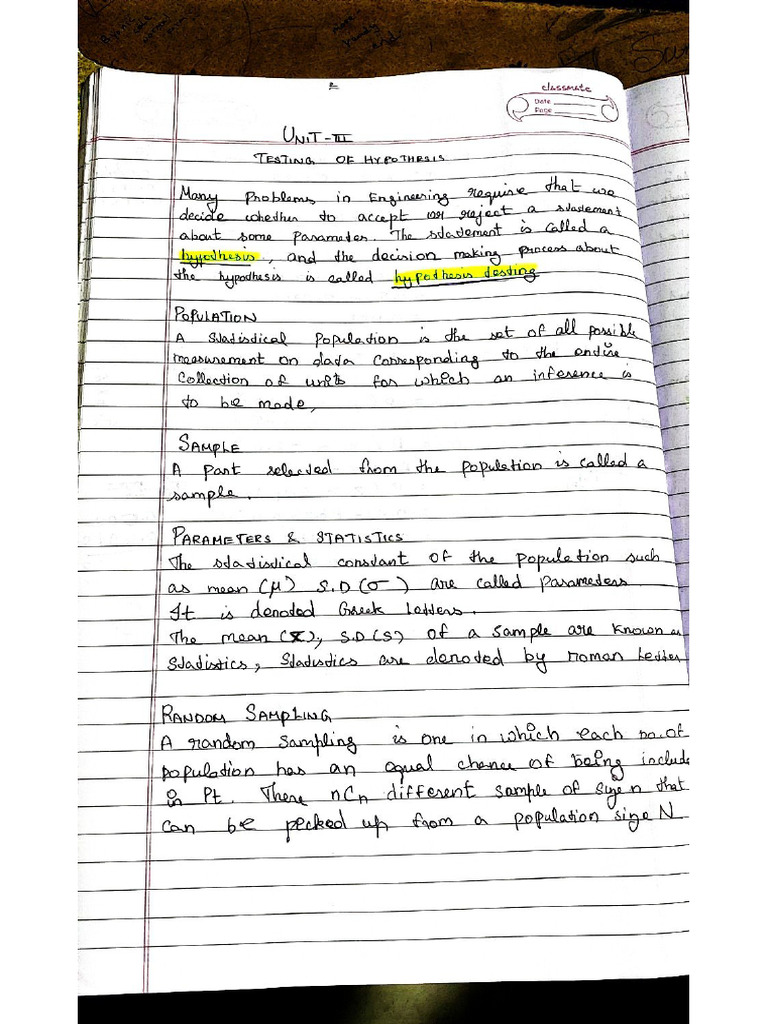 classmate
Date
Page
UNIT-III
TESTING OF HYPOTHESIS
Many Problems in Engineering require that we
decide whether to accept or reject a statement
about some Parameter. The statement is called a
hypothesis, and the decision making process about
the hypothesis is called hypothesis testing
POPULATION
A Statistical Population is the set of all possible
measurement on data corresponding to the entire
Collection of units for which an inference is
to be made,
SAMPLE
A Part selected from the population is called a
sample.
PARAMETERS & STATISTICS
The statistical constant of the population such
as mean (μ) S.D (σ) are called Parameters
It is denoted Greek Letters.
The mean (x̄), S.D (S) of a sample are known as
Statistics, Statistics are denoted by roman Letter
RANDOM SAMPLING
A random sampling is one in which each no. of
population has an equal chance of being include
in Pt. There nCn different sample of size n that
can be pecked up from a population size N